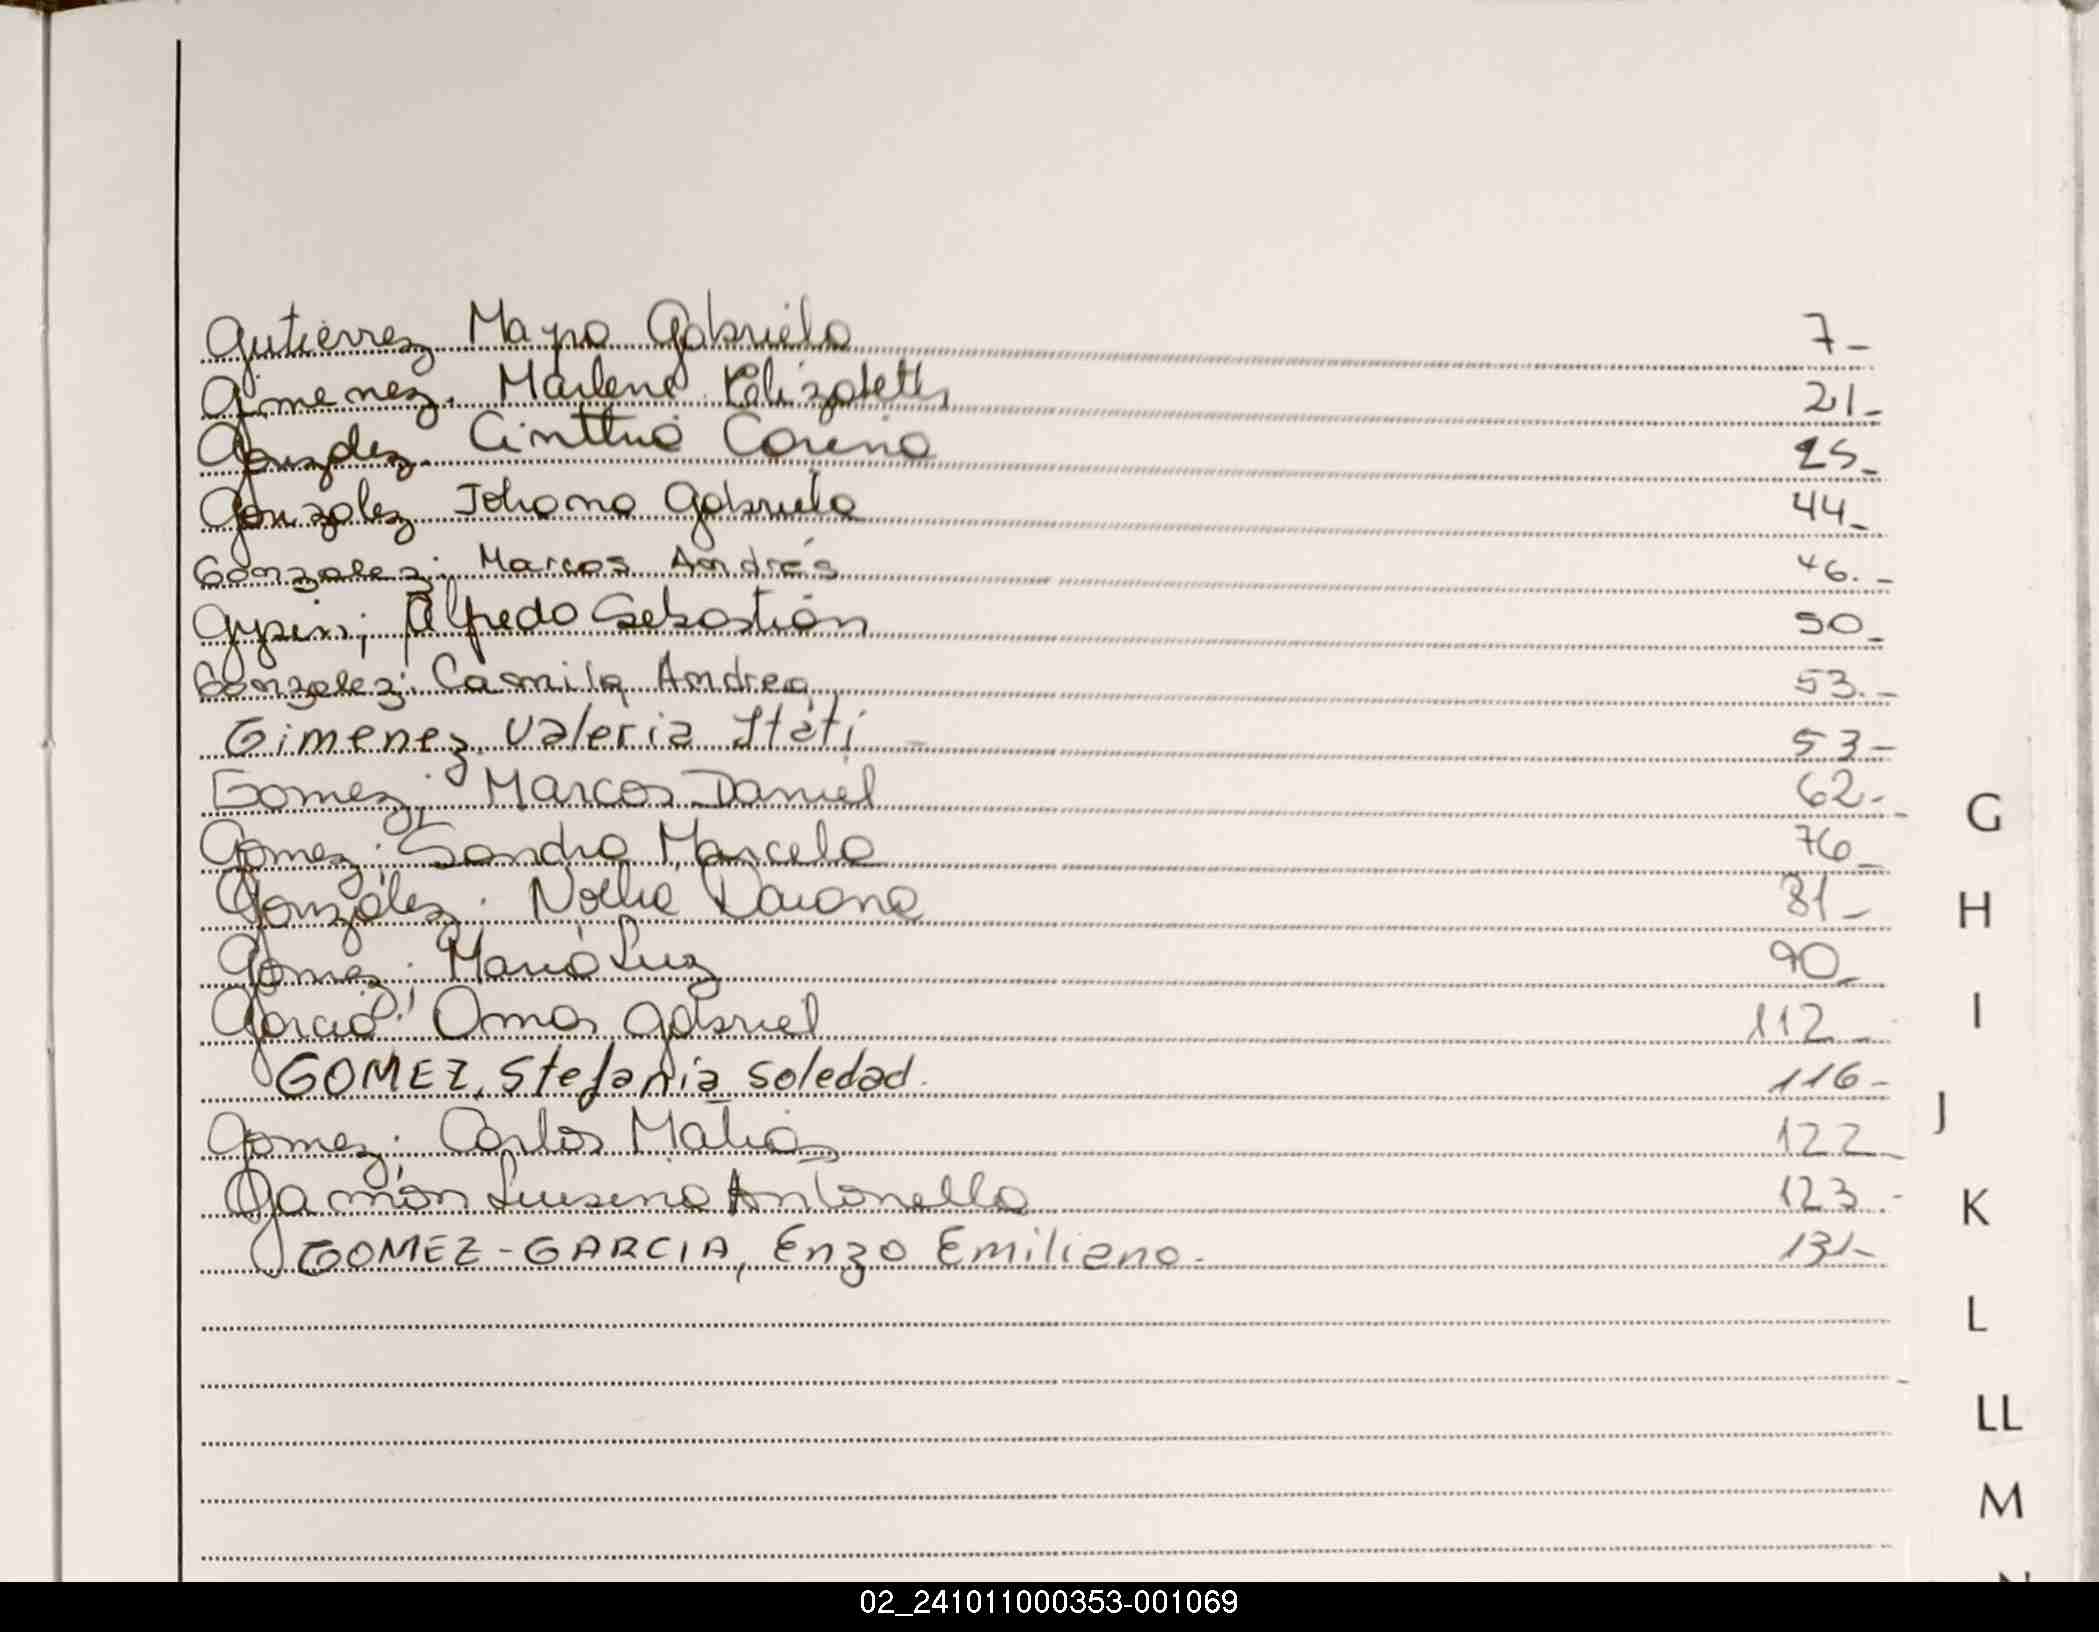 Gutierrez Mayra Gabriela 7_
Gimenez. Marlene Elizabeth 21_
Gonzalez. Cinthia Corina 25_
Gonzalez Johana Gabriela 44_
Gonzalez; Marcos Andrés 46._
; Alfredo Sebastián 50_
Gonzalez; Camila Andrea 53._
Gimenez, Valeria Itatí 53-
Gomez; Marcos Daniel 62-
Gomez; Sandra Marcela 76_
González; Noelia Daiana 81_
Gomez; María Luz 90_
Garcia; Omar Gabriel 112_
GOMEZ, Stefania Soledad. 116-
Gomez; Carlos Matías 122_
Antonella 123-
GOMEZ-GARCIA, Enzo Emiliano. 131-
G
H
I
J
K
L
LL
M
02_241011000353-001069